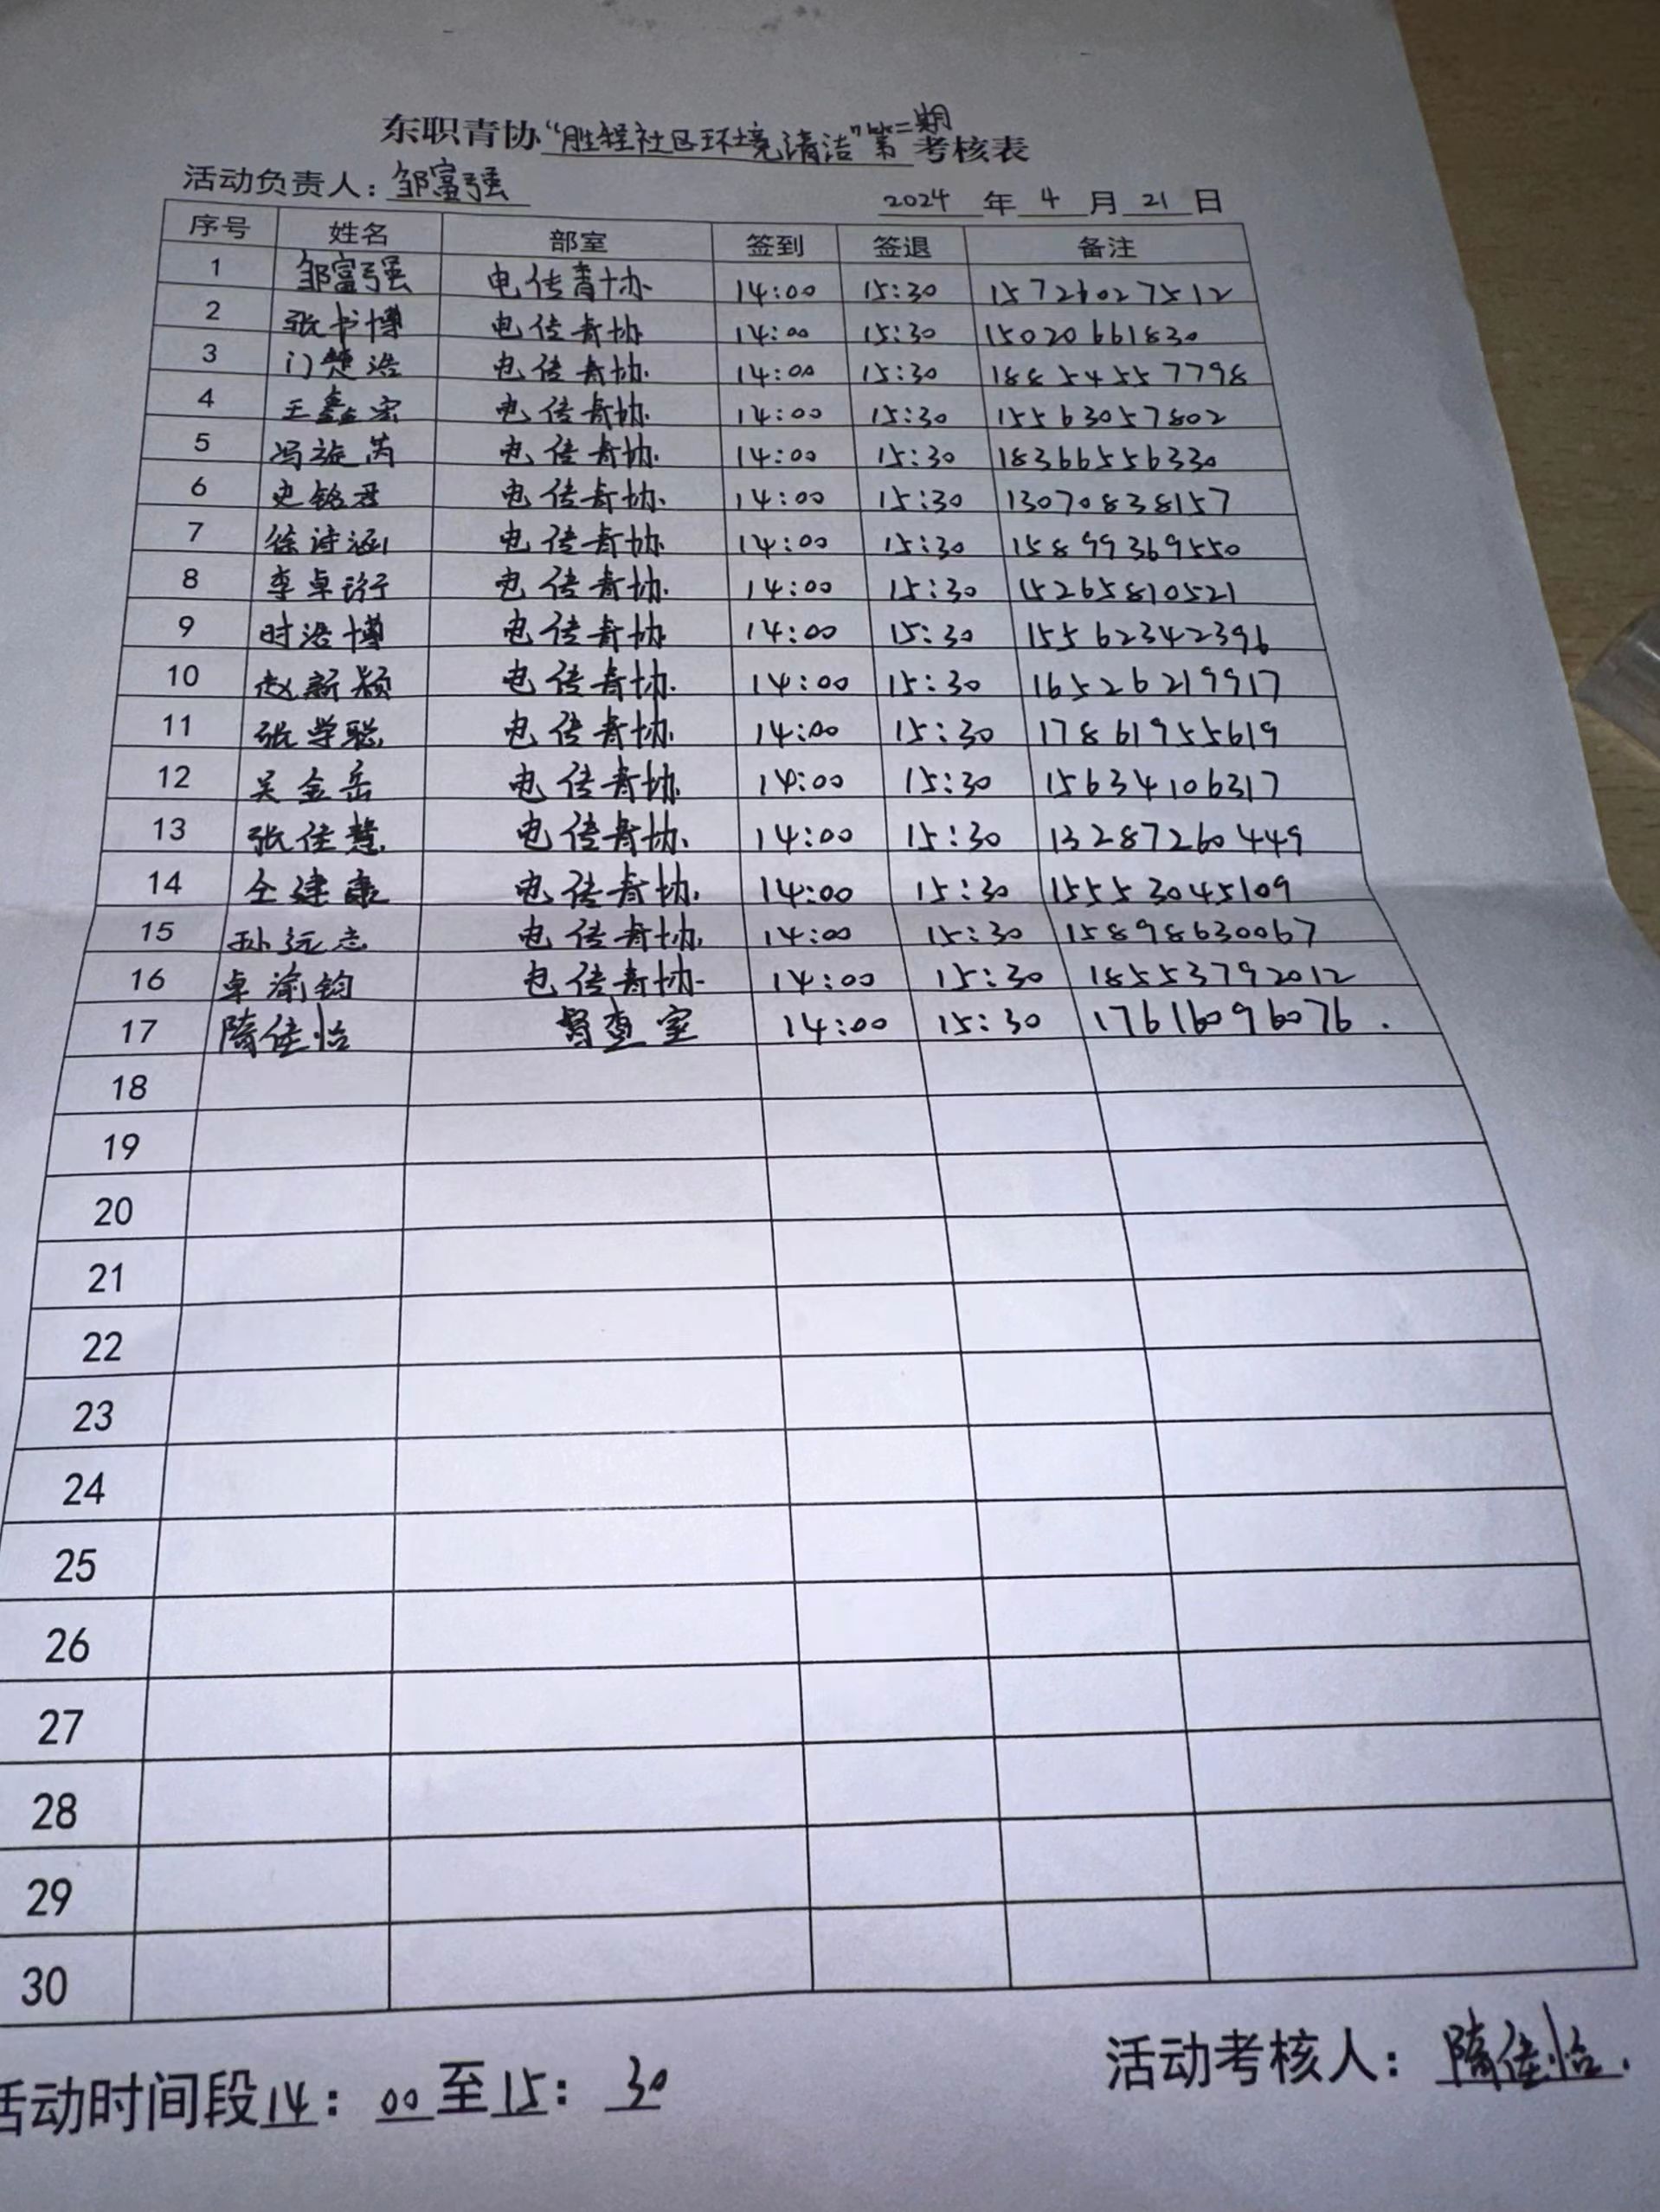 东职青协“胜程社区环境清洁”第二期考核表
活动负责人：邹富强 2024年4月21日
序号 姓名 部室 签到 签退 备注
1 邹富强 电传青协 14:00 15:30
2 张书博 电传青协 14:00 15:30 15020661830
3 门楚浩 电传青协 14:00 15:30 18854557798
4 王鑫宗 电传青协 14:00 15:30 15563057802
5 冯旋芮 电传青协 14:00 15:30 18366556330
6 史铭君 电传青协 14:00 15:30 13070838157
7 徐诗涵 电传青协 14:00 15:30 15899369550
8 李卓衍 电传青协 14:00 15:30 15265810521
9 时浩博 电传青协 14:00 15:30 15562342396
10 赵新颖 电传青协 14:00 15:30 16526219917
11 张学聪 电传青协 14:00 15:30 17861955619
12 吴金岳 电传青协 14:00 15:30 15634106317
13 张佳慧 电传青协 14:00 15:30 13287260449
14 仝建康 电传青协 14:00 15:30 15553045109
15 孙远志 电传青协 14:00 15:30 15898630067
16 卓渝钧 电传青协 14:00 15:30 18553792012
17 隋佳怡 督查室 14:00 15:30 17616096076.
18
19
20
21
22
23
24
25
26
27
28
29
30
活动时间段14：00至15：30 活动考核人：隋佳怡.